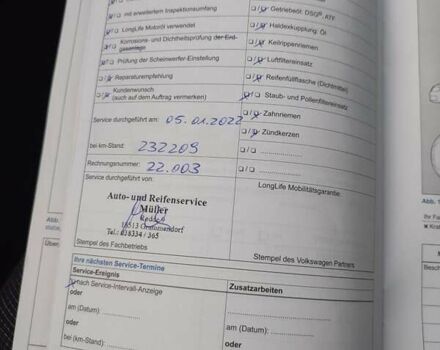 mit erweitertem Inspektionsumfang
LongLife Motoröl verwendet
Korrosions- und Dichtheitsprüfung der Erd-
gasanlage
Prüfung der Scheinwerfer-Einstellung
Reparaturempfehlung
Kundenwunsch
(auch auf dem Auftrag vermerken)
Getriebeöl, DSG®, ATF
Haldexkupplung: Öl
Keilrippenriemen
Luftfiltereinsatz
Reifenfüllflasche (Dichtmittel)
Staub- und Pollenfiltereinsatz
Zahnriemen
Zündkerzen
Service durchgeführt am: 05.01.2022
bei km-Stand: 232209
Rechnungsnummer: 22.003
Service durchgeführt von:
LongLife Mobilitätsgarantie:
Auto- und Reifenservice
Müller
Tel.: 038334 / 365
Stempel des Fachbetriebs
Stempel des Volkswagen Partners
Ihre nächsten Service-Termine
Service-Ereignis
Zusatzarbeiten
nach Service-Intervall-Anzeige
oder
am (Datum)
oder
bei (km-Stand):
am (Datum)
oder
Abb.
Über
Abb. 1